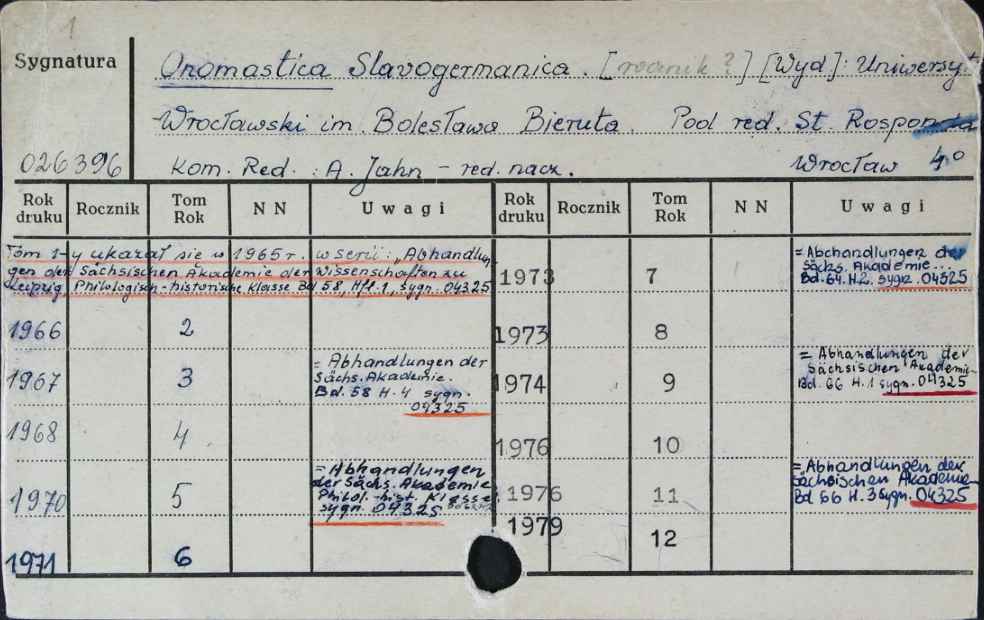 1
Sygnatura
Onomastica Slavogermanica. [rocznik ?] [Wyd]: Uniwersyt
Wrocławski im. Bolesława Bieruta. Pod red. St. Rosponda
026396
Kom. Red. : A. Jahn – red. nacz. Wrocław 4°
Rok druku Rocznik Tom Rok NN Uwagi Rok druku Rocznik Tom Rok NN Uwagi
Tom 1-y ukazał się w 1965 r. w serii: „Abhandlun
gen der Sächsischen Akademie der Wissenschaften zu
Leipzig, Philologisch-historische Klasse Bd 58, Hft. 1, sygn. 04325
1966 2
1967 3 = Abhandlungen der
Sächs. Akademie.
Bd. 58 H. 4 sygn.
04325
1968 4
1970 5 = Abhandlungen
der Sächs. Akademie
Philol.-hist. Klasse
sygn. 04325
1971 6
1973 7 = Abchandlungen der
Sächs. Akademie...
Bd. 64. H. 2. sygn. 04325
1973 8
1974 9 = Abhandlungen der
Sächsischen Akademie
Bd. 66 H. 1 sygn. 04325
1976 10
1976 11 = Abhandlungen der
Sächsischen Akademie
Bd 66 H. 3 sygn. 04325
1979 12